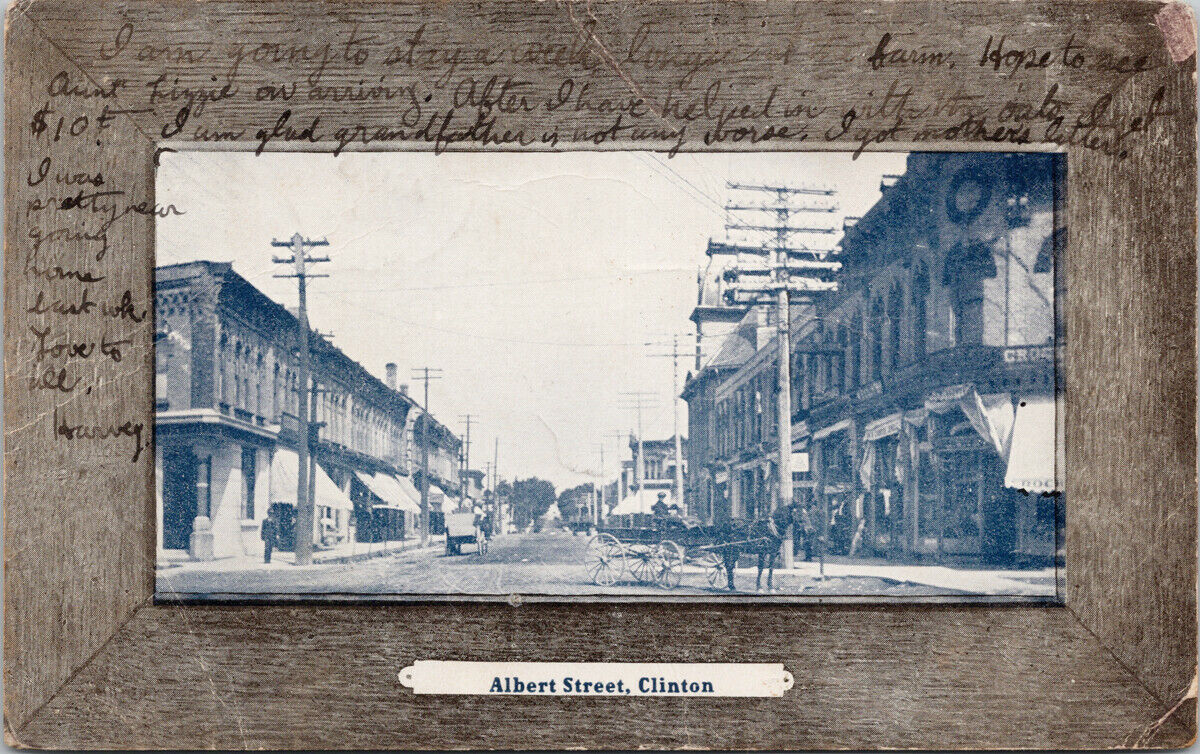 I am going to stay a week longer farm. Hope to see
Aunt Lizzie on arriving. After I have helped in with the oats I get
$10
I am glad grandfather is not any worse. I got mothers letter.
I was
pretty near
going
home
last wk.
Love to
all.
Harvey.
GROC
Albert Street, Clinton